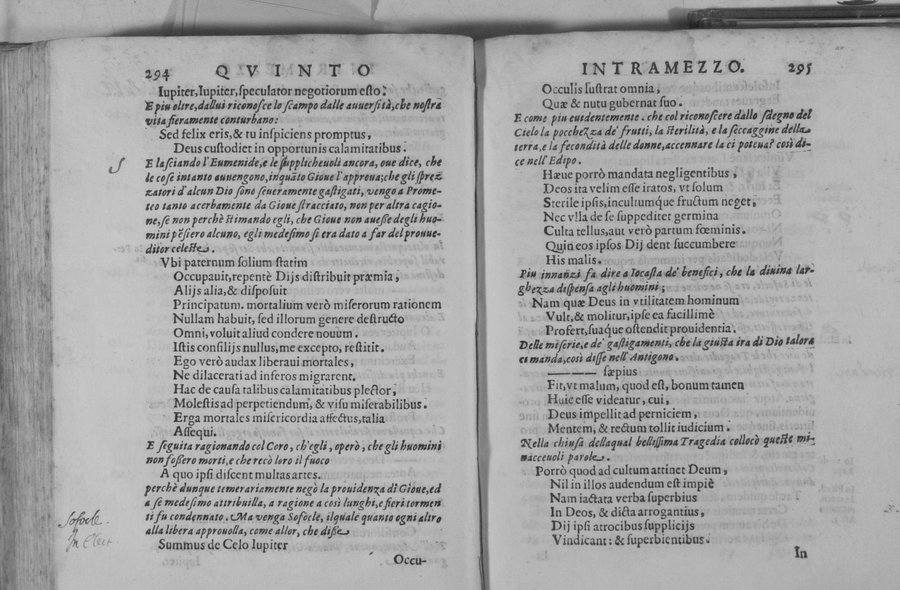 294 QVINTO
Iupiter, Iupiter, speculator negotiorum esto:
E piu oltre, dallui riconosce lo scampo dalle auuersità, che nostra
vita fieramente conturbano:
Sed felix eris, & tu inspiciens promptus,
Deus custodiet in opportunis calamitatibus.
E lasciando l'Eumenide, e le supplicheuoli ancora, oue dice, che
le cose intanto auuengono, inquãto Gioue l'approua; che gli sprez
zatori d'alcun Dio sono seueramente gastigati, vengo a Prome-
teo tanto acerbamente da Gioue stracciato, non per altra cagio-
ne, se non perchè stimando egli, che Gioue non auesse degli huo-
mini pẽsiero alcuno, egli medesimo si era dato a far del proue-
ditor celeste.
Vbi paternum solium statim
Occupauit, repentè Dijs distribuit præmia,
Alijs alia, & disposuit
Principatum. mortalium verò miserorum rationem
Nullam habuit, sed illorum genere destructo
Omni, voluit aliud condere nouum.
Istis consilijs nullus, me excepto, restitit.
Ego verò audax liberaui mortales,
Ne dilacerati ad inferos migrarent.
Hac de causa talibus calamitatibus plector,
Molestis ad perpetiendum, & visu miserabilibus.
Erga mortales misericordia affectus, talia
Assequi.
E seguita ragionando col Coro, ch'egli, operò, che gli huomini
non fossero morti, e che recò loro il fuoco
A quo ipsi discent multas artes.
perchè dunque temerariamente negò la prouidenza di Gioue, ed
a se medesimo attribuilla, a ragione a così lunghi, e fieri tormen
ti fu condennato. Ma venga Sofocle, ilquale quanto ogni altro
alla libera approuolla, come allor, che disse
Sofocle.
In Elect.
Summus de Celo Iupiter
Occu-
INTRAMEZZO. 295
Occulis lustrat omnia,
Quæ & nutu gubernat suo.
E come piu euidentemente. che col riconoscere dallo sdegno del
Cielo la pochezza de' frutti, la sterilità, e la seccaggine della
terra, e la fecondità delle donne, accennare la ci poteua? così di-
ce nell'Edipo.
Hæue porrò mandata negligentibus,
Deos ita velim esse iratos, vt solum
Sterile ipsis, incultumque fructum neget,
Nec vlla de se suppeditet germina
Culta tellus, aut verò partum fœminis.
Quin eos ipsos Dij dent succumbere
His malis.
Piu innanzi fa dire a Iocasta de' benefici, che la diuina lar-
ghezza dispensa agli huomini;
Nam quæ Deus in vtilitatem hominum
Vult, & molitur, ipse ea facillimè
Profert, suaque ostendit prouidentia.
Delle miserie, e de' gastigamenti, che la giusta ira di Dio talora
ci manda, così disse nell'Antigono.
——— sæpius
Fit, vt malum, quod est, bonum tamen
Huic esse videatur, cui,
Deus impellit ad perniciem,
Mentem, & rectum tollit iudicium.
Nella chiusa dellaqual bellissima Tragedia collocò queste mi-
nacceuoli parole.
Porrò quod ad cultum attinet Deum,
Nil in illos audendum est impiè
Nam iactata verba superbius
In Deos, & dicta arrogantius,
Dij ipsi atrocibus supplicijs
Vindicant: & superbientibus.
In